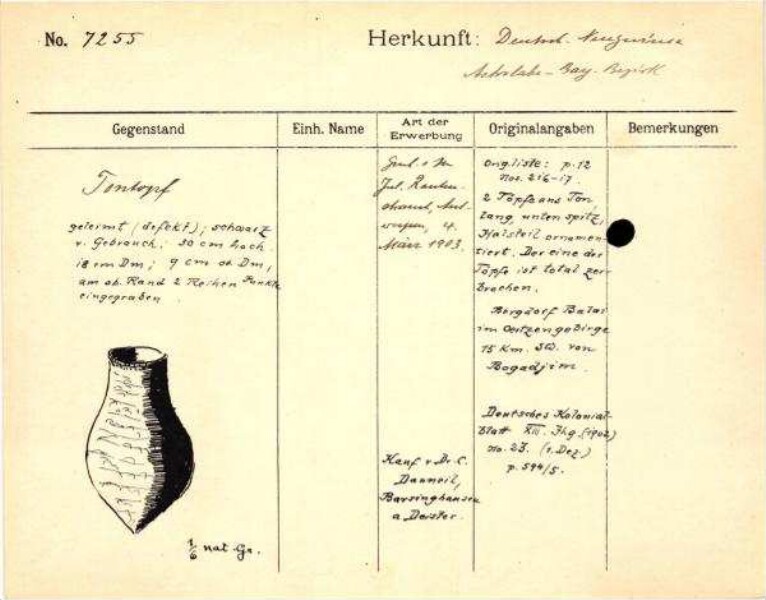 No. 7255
Herkunft: Deutsch-Neuguinea
Astrolabe-Bay-Bezirk
Gegenstand
Einh. Name
Art der
Erwerbung
Originalangaben
Bemerkungen
Tontopf
geleimt (defekt); schwarz
v. Gebrauch; 30 cm hoch
18 cm Dm; 9 cm ob. Dm,
am ob. Rand 2 Reihen Punkte
eingegraben
1/6 nat Gr.
Jul.
März 1903.
Kauf v Dr. C.
Danneil,
Barsinghausen
a Deister.
Orig. liste: p. 12
Nos. 216-17.
2 Töpfe aus Ton,
lang, unten spitz,
Halsteil ornamen-
tiert. Der eine der
Töpfe ist total zer-
brochen.
Bergdorf Balai
im Oertzengebirge
15 Km. SW. von
Bogadjim.
Deutsches Kolonial-
blatt XIII. Jhg. (1902)
No. 23. (1. Dez.)
p. 594/5.